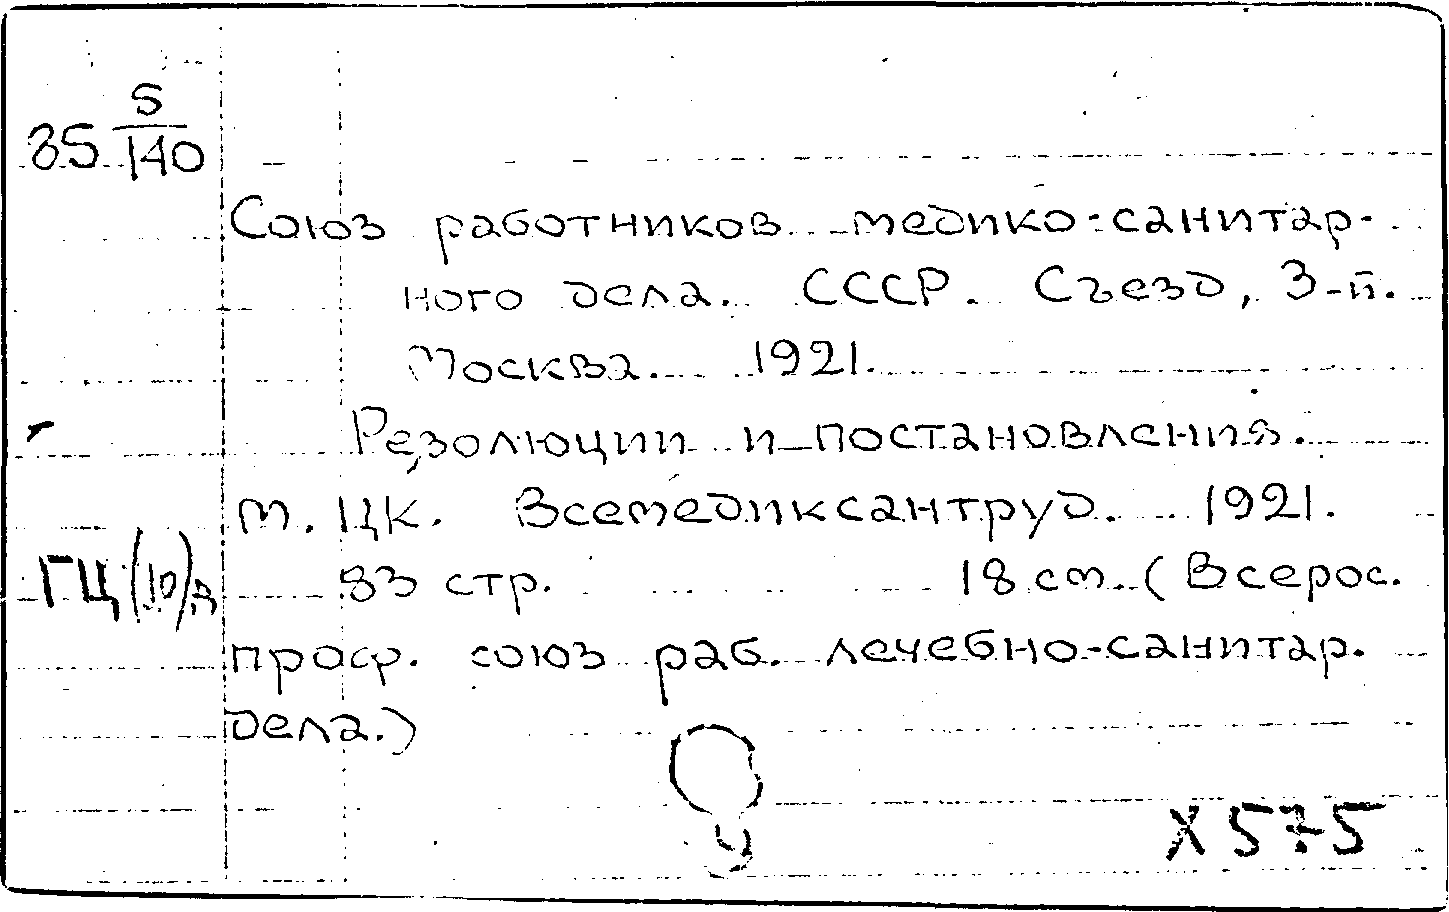 85 5/140
Союз работников медико-санитар-
ного дела. СССР. Съезд, 3-й.
Москва. 1921.
Резолюции и постановления.
м. ЦК. Всемедиксантруд. 1921.
ГЦ(10)в 83 стр. 18 см. (Всерос.
проф. союз раб. лечебно-санитар.
дела.)
X575